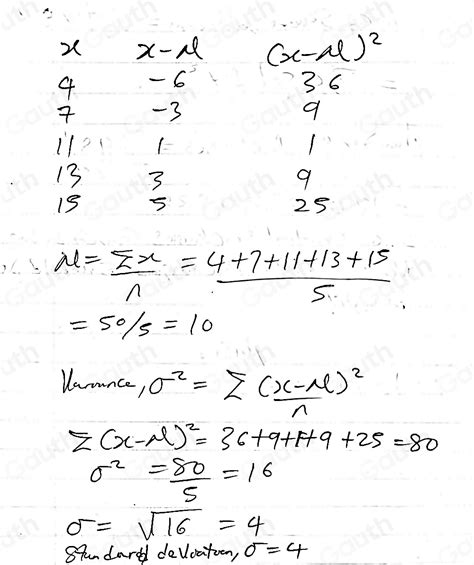 x x-μ (x-μ)²
4 -6 36
7 -3 9
11 1 1
13 3 9
15 5 25
μ = Σx/n = (4+7+11+13+15)/5
= 50/5 = 10
Variance, σ² = Σ(x-μ)²/n
Σ(x-μ)² = 36+9+1+9+25 = 80
σ² = 80/5 = 16
σ = √16 = 4
Standard deviation, σ = 4